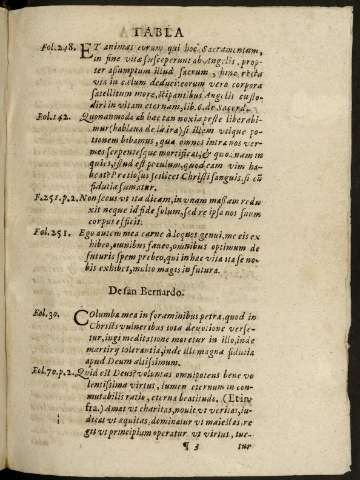 TABLA
Fol.248. ET animas eorum qui hoc Sacramentum,
in fine vitæ susceperunt ab Angelis, prop
ter assumptum illud sacrum, sine
via in cælum deduci: eorum vero corpora
satellitum more, stipantibus Angelis custo
diri in vitam eternam, lib.6. de Sacerd.
Fol.142. Quonam modo ab hac tan noxia peste liberabi-
mur (hablaua de la ira) si illam utique po-
tionem bibamus, quæ omnes intra nos ver-
mes serpentesque mortificat, & quænam in
quies, ista est poculum, quod eam vim ha-
beat? Pretiosus scilicet Christi sanguis, si cũ
fidutia sumatur.
F.251.p.2. Non secus ut ita dicam, in vnam massam redu
xit neque id fide solum, sed re ipsa nos suum
corpus efficit.
Fol.251. Ego autem mea carne à loques genui, me eis ex
hibeo, omnibus faueo, omnibus optimum de
futuris spem prebeo, qui in hac vita ita se no-
bis exhibet, multo magis in futura.
De san Bernardo.
Fol.30. Columba mea in foraminibus petræ, quod in
Christi vulneribus tota deuotione verse-
tur, iugi meditatione moretur in illo, inde
martirij tolerantia, inde illi magna fidutia
apud Deum altissimum.
Fol.70.p.2. Quid est Deus? voluntas omnipotens bene vo
lentissima virtus, lumen eternum in com-
mutabilis ratio, eterna beatitudo. (Et infra
fra.) Amat vt charitas, nouit vt veritas, iu-
dicat vt æquitas, dominatur vt maiestas, re-
git vt principium operatur vt virtus, tue-
¶ 3 tur